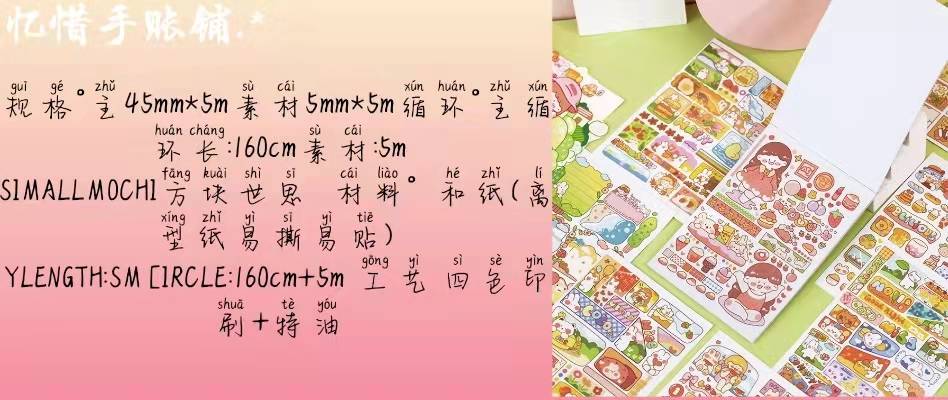 忆惜手账铺.
guī gé zhǔ sù cái xún huán zhǔ xún
规格。主45mm*5m素材5mm*5m循环。主循
huán cháng sù cái
环长:160cm素材:5m
fāng kuài shì sī cái liào hé zhǐ lí
SIMALLMOCHI方块世思 材料。和纸(离
xíng zhǐ yì sī yì tiē
型纸易撕易贴)
gōng yì sì sè yìn
YLENGTH:SM [IRCLE:160cm+5m 工艺四色印
shuā tè yóu
刷+特油